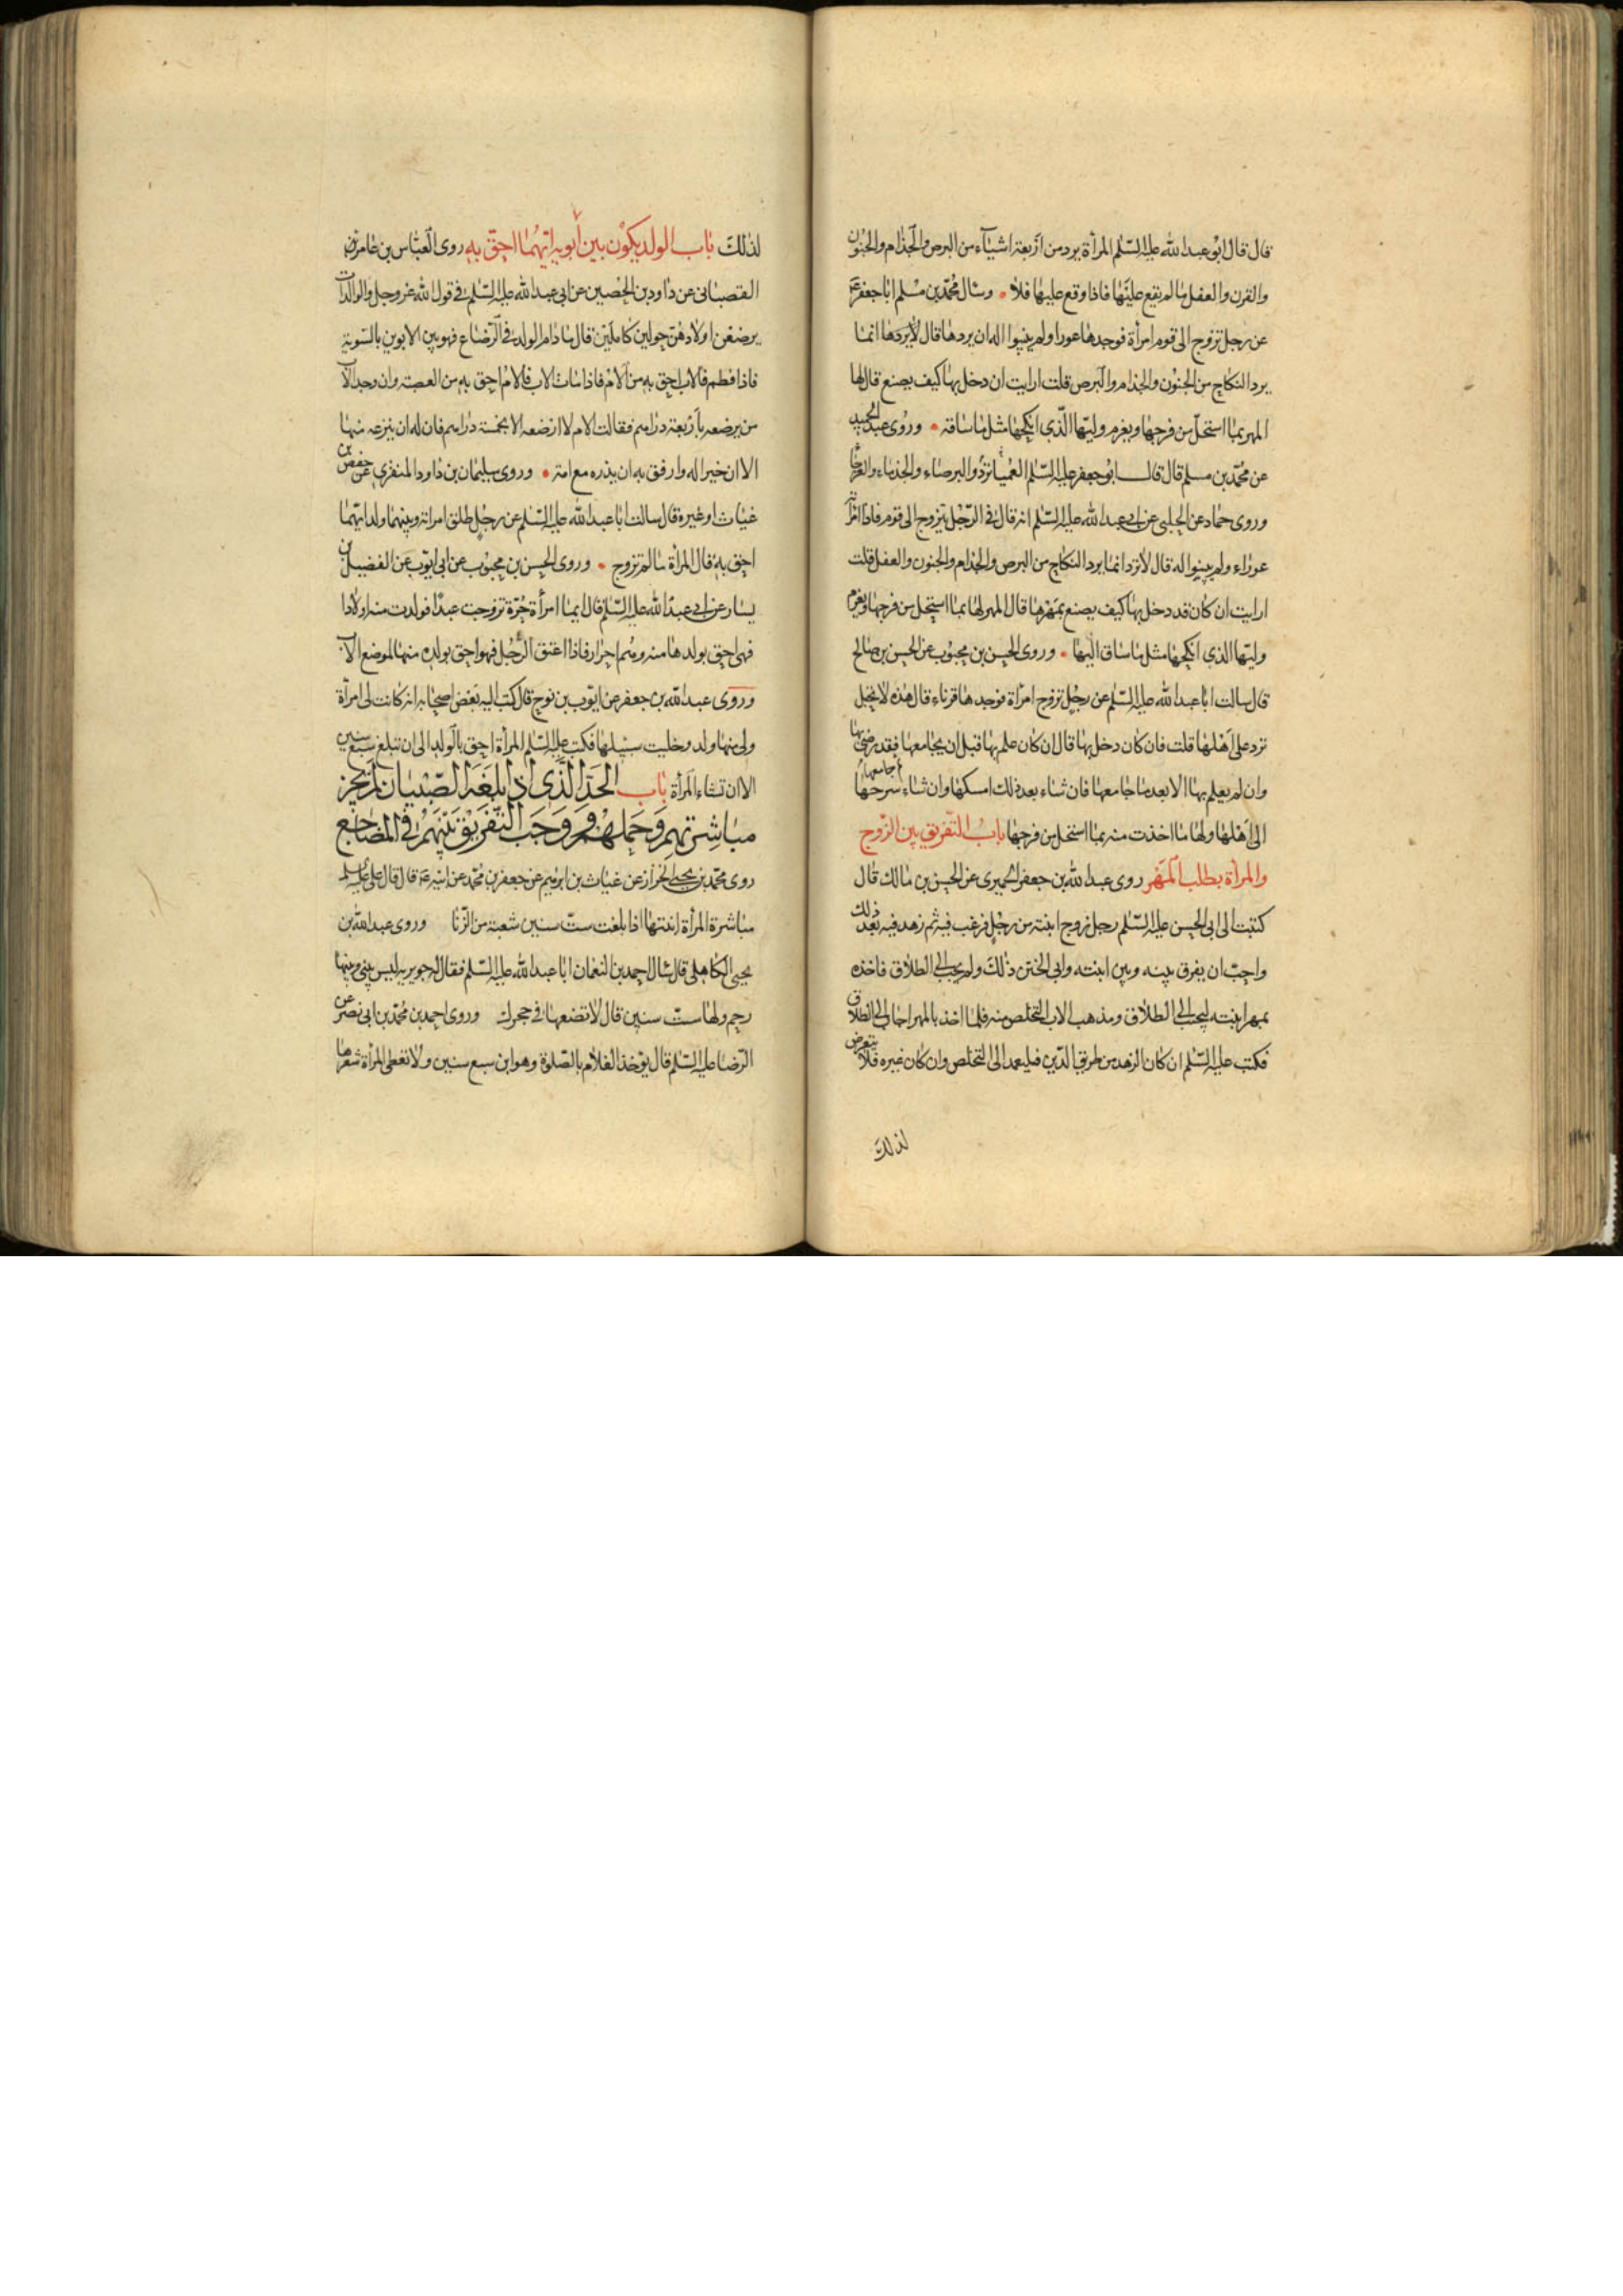 قال قال ابو عبد الله عليه السلم المرأة يرد من اربعة اشياء من البرص والجذام والجنون
والقرن والعفل ما لم يقع عليها فاذا وقع عليها فلا • وسال محمد بن مسلم ابا جعفر ع
عن رجل تزوج الى قوم امرأة فوجدها عورا ولم يبينوا له ان يردها قال لا يردها انما
يرد النكاح من الجنون والجذام والبرص قلت ارايت ان دخل بها كيف يصنع قال لها
المهر بما استحل من فرجها ويغرم وليها الذي انكحها مثل ما ساقه • وروى عبد الحميد
عن محمد بن مسلم قال قال ابو جعفر عليه السلم ترد العميا والبرصاء والجذماء والعرجا
وروى حماد عن الحلبي عن ابي عبد الله عليه السلم انه قال في الرجل يتزوج الى قوم فاذا امرأته
عوراء ولم يبينوا له قال لا ترد انما يرد النكاح من البرص والجذام والجنون والعفل قلت
ارايت ان كان قد دخل بها كيف يصنع بمهرها قال المهر لها بما استحل من فرجها ويغرم
وليها الذي انكحها مثل ما ساق اليها • وروى الحسن بن محبوب عن الحسن بن صالح
قال سالت ابا عبد الله عليه السلم عن رجل تزوج امرأة فوجدها قرناء قال هذه لا تحبل
ترد على اهلها قلت فان كان دخل بها قال ان كان علم بها قبل ان يجامعها فقد رضى بها
وان لم يعلم بها الا بعد ما جامعها فان شاء بعد ذلك امسكها وان شاء سرحها
الى اهلها ولها ما اخذت منه بما استحل من فرجها باب التفريق بين الزوج
والمرأة بطلب المهر روى عبد الله بن جعفر الحميري عن الحسن بن مالك قال
كتبت الى ابي الحسن عليه السلم رجل زوج ابنته من رجل فرغب فيه ثم زهد فيه بعد ذلك
واحب ان يفرق بينه وبين ابنته وابى الختن ذلك ولم يجب الى الطلاق فاخذه
بمهر ابنته ليجيب الى الطلاق ومذهب الاب التخلص منه فلما اخذ بالمهر اجاب الى الطلاق
فكتب عليه السلم ان كان الزهد من طريق الدين فليعمد الى التخلص وان كان غيره فلا يتعرض
لذلك
لذلك باب الولد يكون بين ابويه ايهما احق به روى العباس بن عامر
القصباني عن داود بن الحصين عن ابي عبد الله عليه السلم في قول الله عز وجل والوالدات
يرضعن اولادهن حولين كاملين قال ما دام الولد في الرضاع فهو بين الابوين بالسوية
فاذا فطم فالاب احق به من الام فاذا مات الاب فالام احق به من العصبة وان وجد الاب
من يرضعه باربعة دراهم فقالت الام لا ارضعه الا بخمسة دراهم فان له ان ينزعه منها
الا ان خيرا له وارفق به ان يذره مع امه • وروى سليمان بن داود المنقري عن حفص بن
غياث او غيره قال سالت ابا عبد الله عليه السلم عن رجل طلق امراته وبينهما ولد ايهما
احق به قال المرأة ما لم تزوج • وروى الحسن بن محبوب عن ابي ايوب عن الفضيل بن
يسار عن ابي عبد الله عليه السلم قال ايما امرأة حرة تزوجت عبدا فولدت منه اولادا
فهي احق بولدها منه وهم احرار فاذا اعتق الرجل فهو احق بولده منها لموضع الاب
وروى عبد الله بن جعفر عن ايوب بن نوح قال كتب اليه بعض اصحابه انه كانت لي امرأة
ولي منها ولد وخليت سبيلها فكتب عليه السلم المرأة احق بالولد الى ان تبلغ سبع سنين
الا ان تشاء المرأة باب الحد الذي اذا بلغه الصبيان لم يجز
مباشرتهم وحملهم ووجب التفريق بينهم في المضاجع
روى محمد بن يحيى الخزاز عن غياث بن ابرهيم عن جعفر بن محمد عن ابيه ع قال قال علي عليه السلم
مباشرة المرأة ابنتها اذا بلغت ست سنين شعبة من الزنا وروى عبد الله بن
يحيى الكاهلي قال سال احمد بن النعمان ابا عبد الله عليه السلم فقال له جويرية ليس بيني وبينها
رحم ولها ست سنين قال لا تضعها في حجرك وروى احمد بن محمد بن ابي نصر عن
الرضا عليه السلم قال يؤخذ الغلام بالصلوة وهو ابن سبع سنين ولا تغطي المرأة شعرها